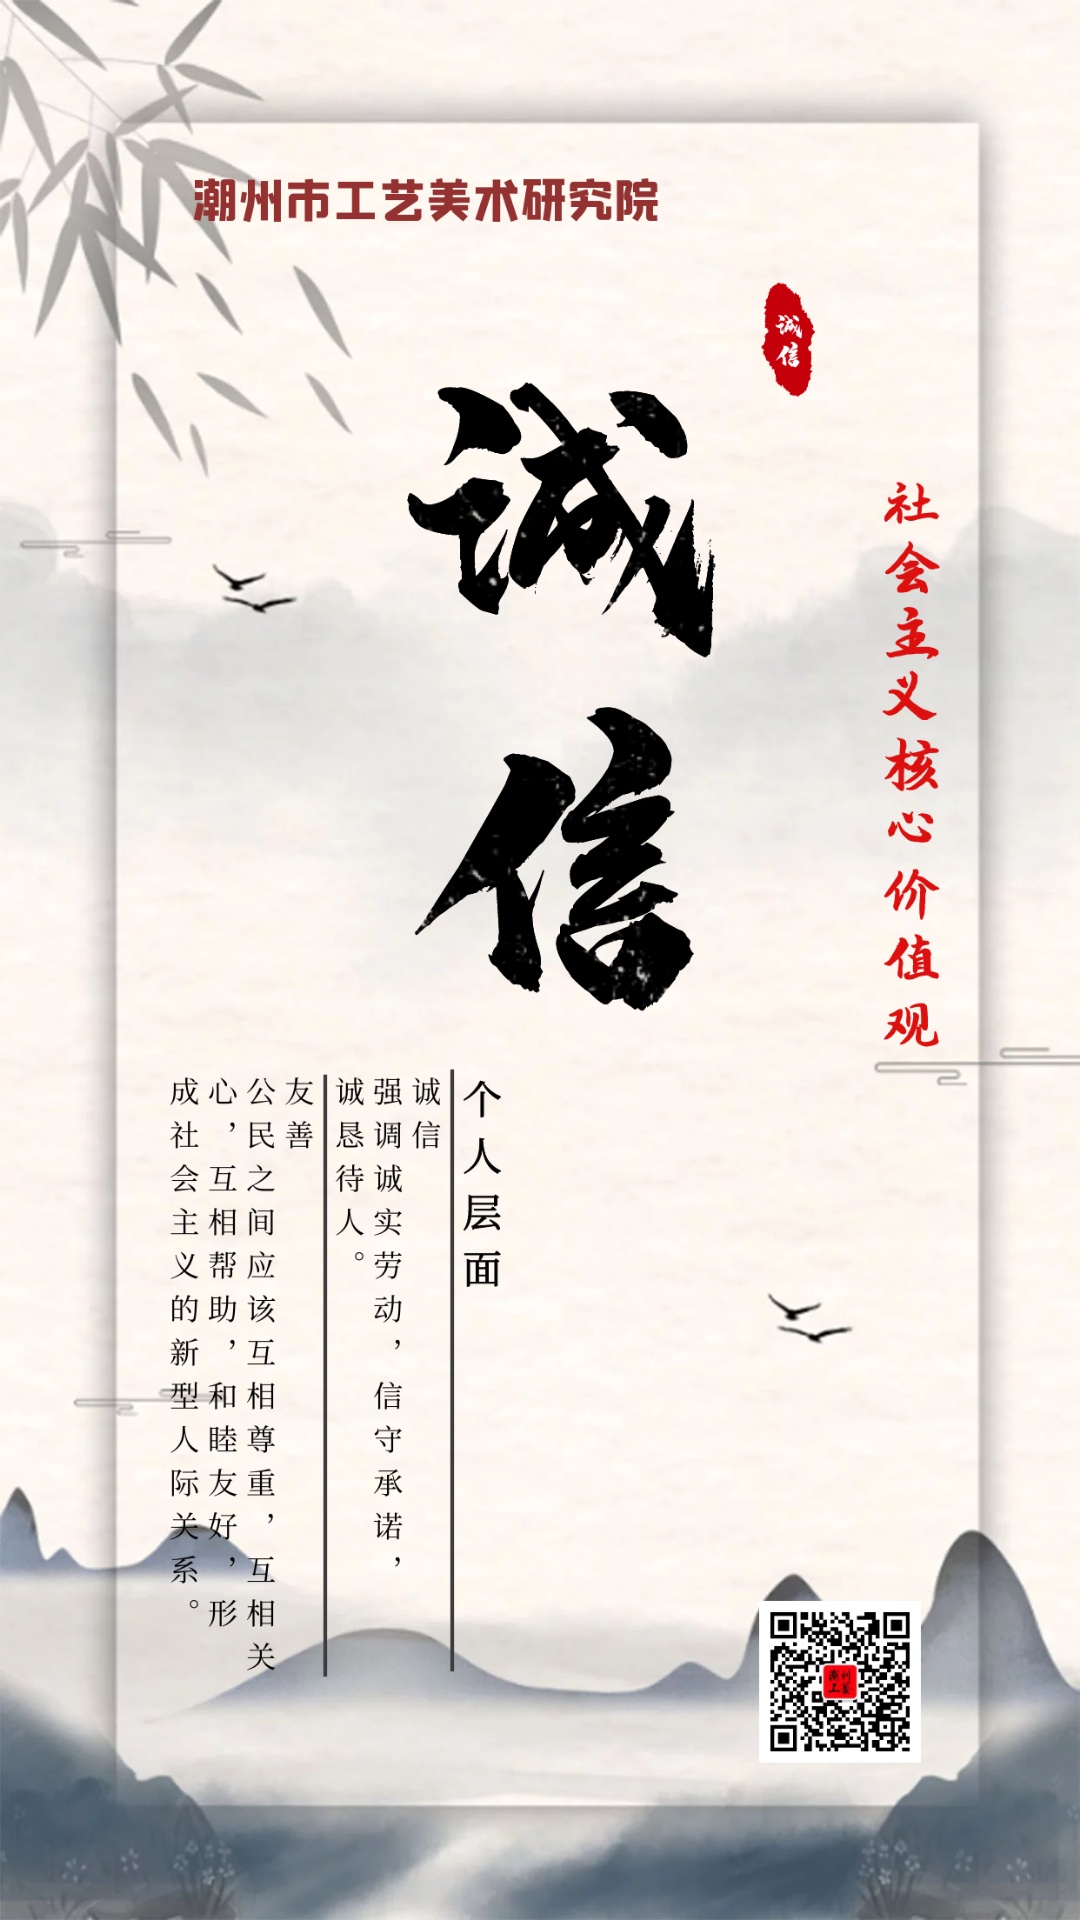 潮州市工艺美术研究院
诚信
社会主义核心价值观
诚信
个人层面
诚信
强调诚实劳动，信守承诺，
诚恳待人。
友善
公民之间应该互相尊重，互相关
心，互相帮助，和睦友好，形
成社会主义的新型人际关系。
潮州
工艺